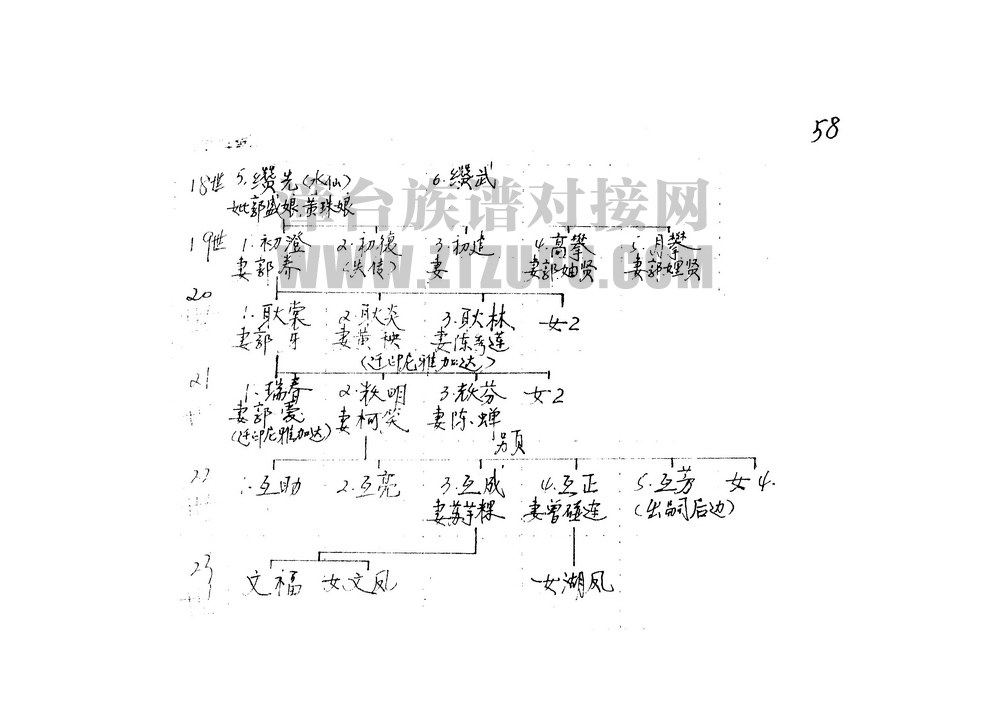 58
18世 5.缵先(水仙) 6.缵武
妣郭盛娘.黄珠娘
漳台族谱对接网
19世 1.初澄 2.初德 3.初建 4.高攀 5.月攀
妻郭春 (失传) 妻 妻郭妯贤 妻郭娌贤
WWW.ZTZUPU.COM
20
1.耿棠 2.耿炎 3.耿林 女2
妻郭牙 妻黄秧 妻陈秀莲
(迁印尼雅加达)
21
1.瑞春 2.敕明 3.敕芬 女2
妻郭 妻柯笑 妻陈蝉
(迁印尼雅加达)
另页
22 1.互助 2.互亮 3.互成 4.互正 5.互芳 女4.
妻苏芋粿 妻曾碰连 (出嗣后边)
23
文福 女文凤 女湖凤